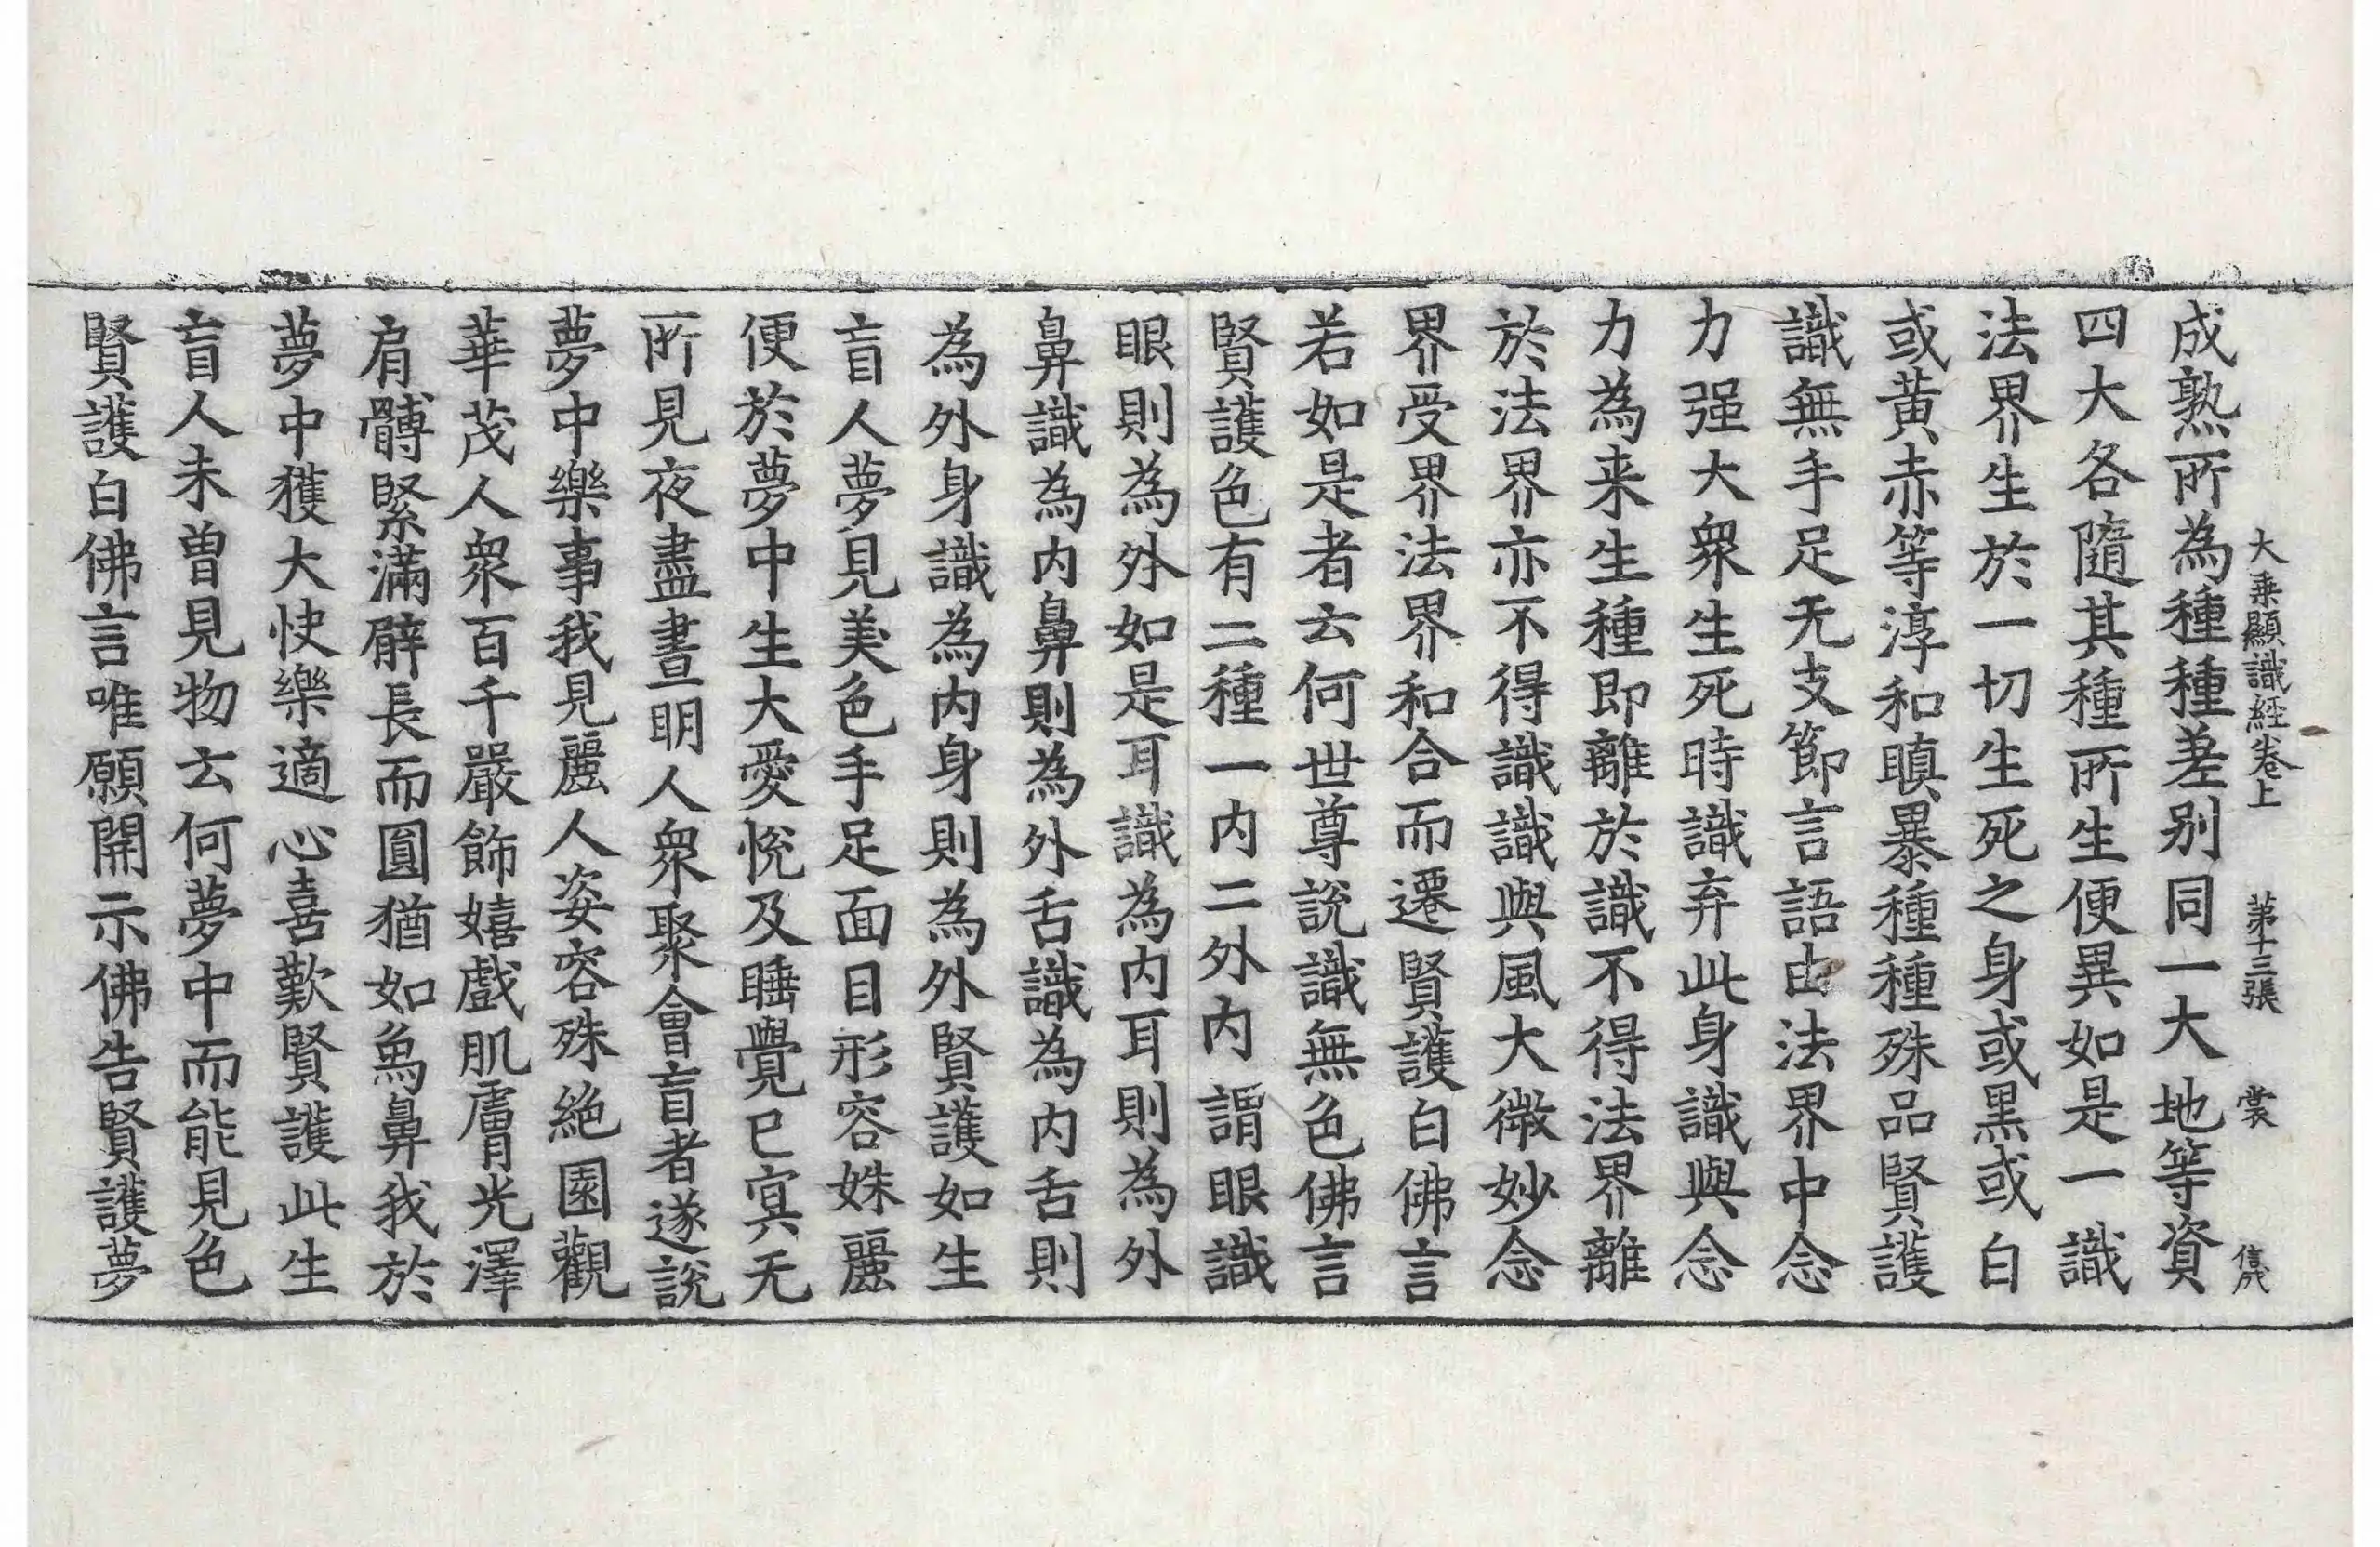 大乘顯識經卷上 第十三張 裳 儁戌
成熟所為種種差別同一大地等資
四大各隨其種所生便異如是一識
法界生於一切生死之身或黑或白
或黃赤等淳和瞋暴種種殊品賢護
識無手足无支節言語由法界中念
力强大眾生死時識弃此身識與念
力為来生種即離於識不得法界離
於法界亦不得識識與風大微妙念
界受界法界和合而遷賢護白佛言
若如是者云何世尊說識無色佛言
賢護色有二種一内二外内謂眼識
眼則為外如是耳識為内耳則為外
鼻識為内鼻則為外舌識為内舌則
為外身識為内身則為外賢護如生
盲人夢見美色手足面目形容姝麗
便於夢中生大愛悅及睡覺已寘无
所見夜盡晝明人眾聚會盲者遂說
夢中樂事我見麗人姿容殊絕園觀
華茂人眾百千嚴飾嬉戲肌膚光澤
肩髆緊滿臂長而圓猶如象鼻我於
夢中獲大快樂適心喜歎賢護此生
盲人未曾見物云何夢中而能見色
賢護白佛言唯願開示佛告賢護夢